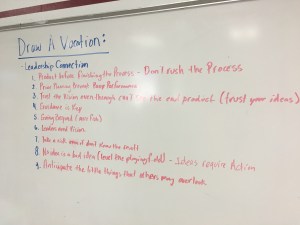 Draw A Vacation:
- Leadership Connection
1. Product before finishing the Process - Don't rush the Process
2. Prior Planning Prevent Poor Performance
3. Trust the Vision even though can't see the end product (trust your ideas)
4. Guidance is Key
5. Going Beyond (have fun)
6. Leaders need Vision
7. Take a risk even if don't know the result
8. No idea is a bad idea (level the playing field) - Ideas require Action
9. Anticipate the little things that others may overlook.